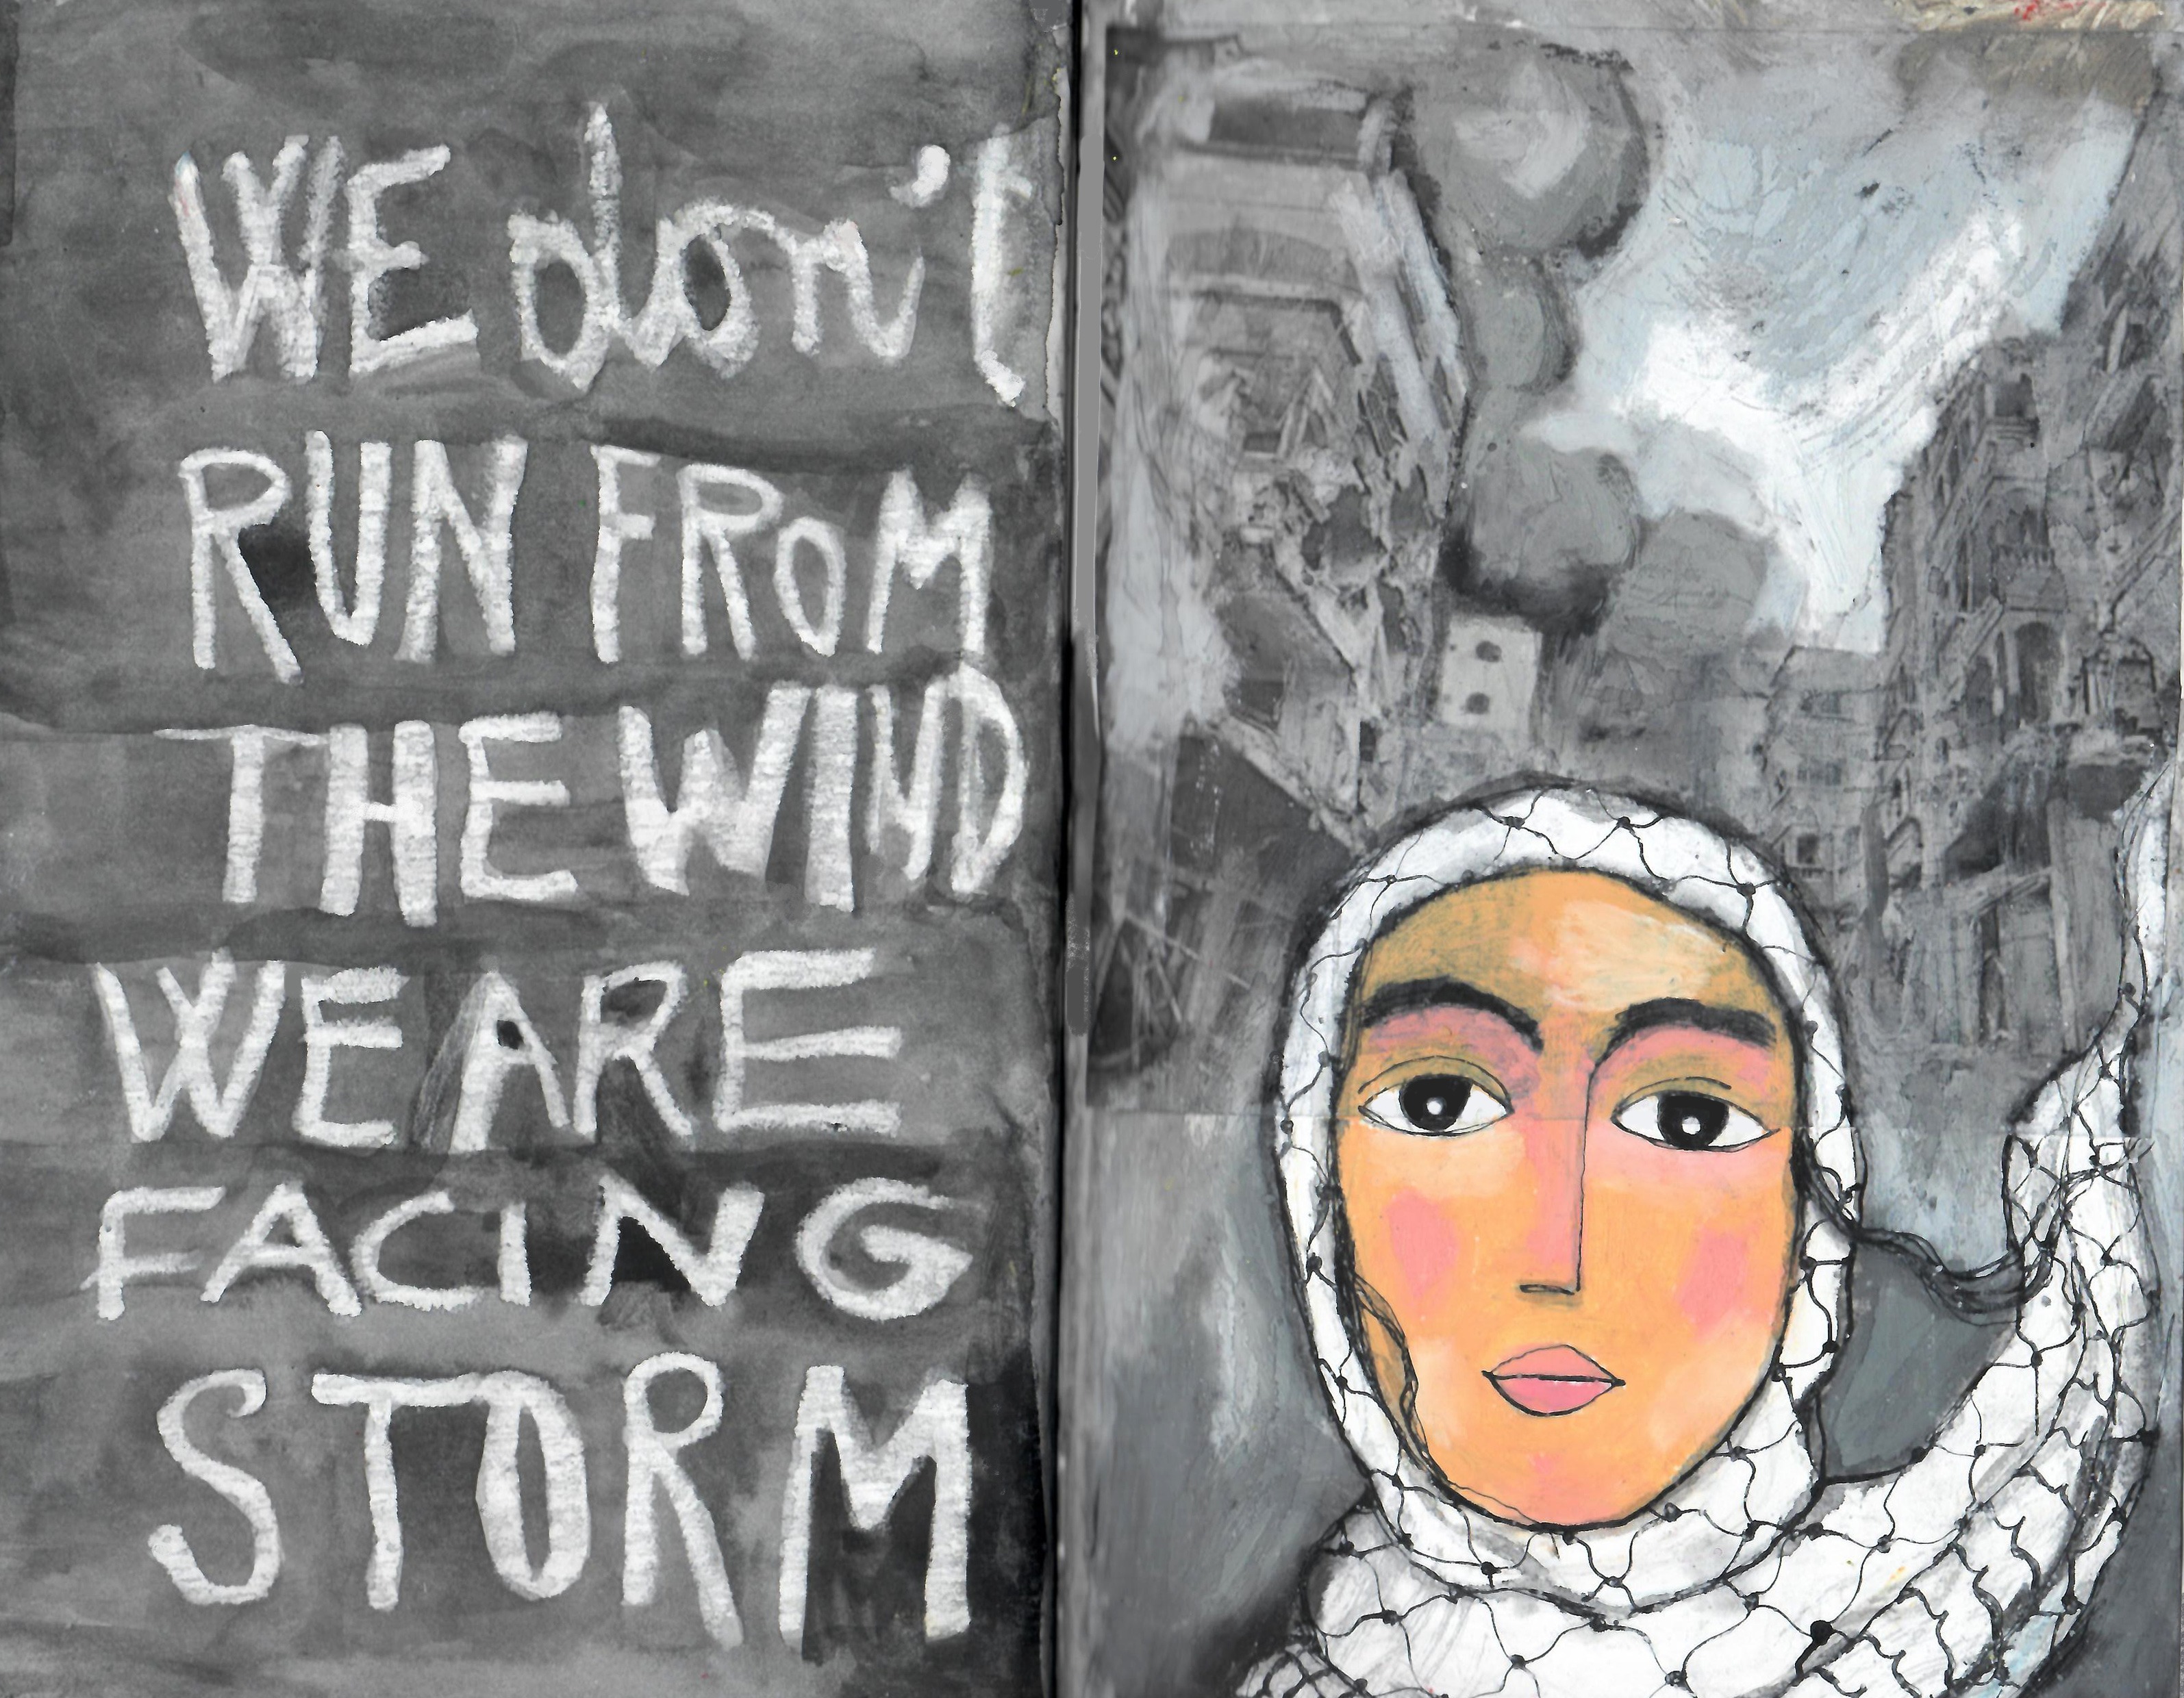 WE don't
RUN FROM
THE WIND
WE ARE
FACING
STORM